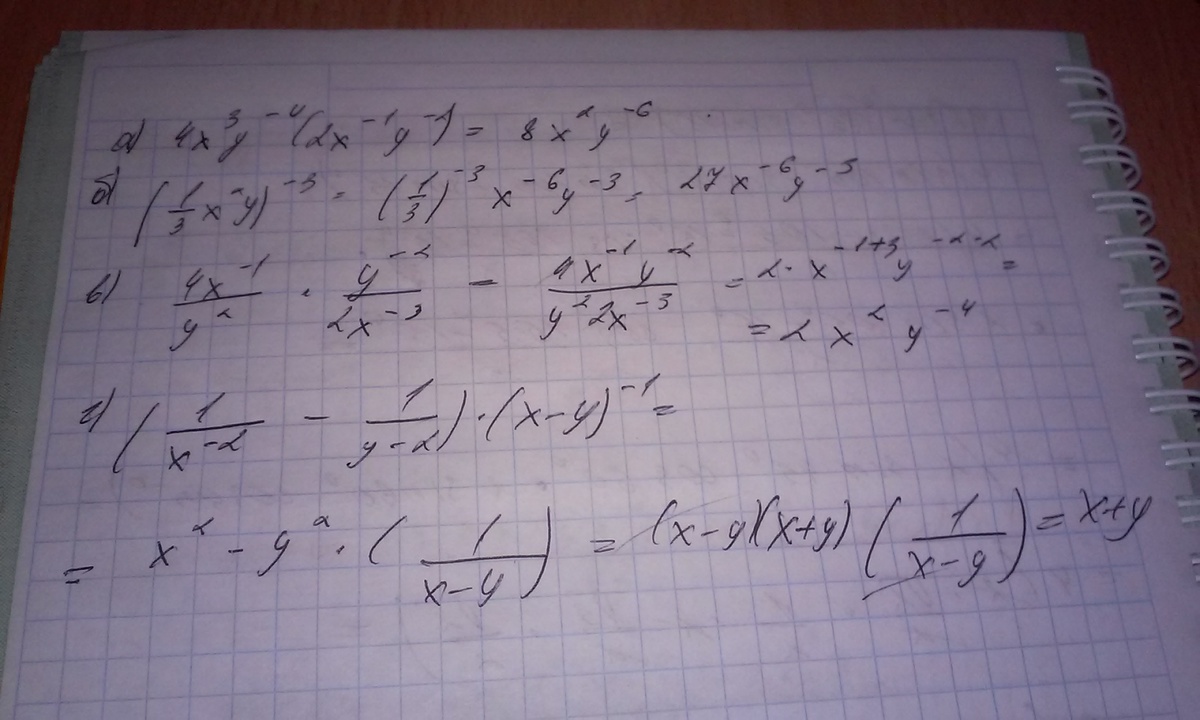 а) 4x³y⁻⁴(2x⁻¹y⁻²) = 8x²y⁻⁶
б) (1/3 x⁻y)⁻³ = (1/3)⁻³ x⁻⁶y⁻³ = 27x⁻⁶y⁻³
в) 4x⁻¹/y² · y⁻²/2x⁻³ = 4x⁻¹y⁻²/y²2x⁻³ = 2·x⁻¹⁺³y⁻²⁻² =
= 2x²y⁻⁴
г) (1/x⁻² − 1/y−2)·(x−y)⁻¹ =
= x²−y²·(1/x−y) = (x−y)(x+y)(1/x−y) = x+y